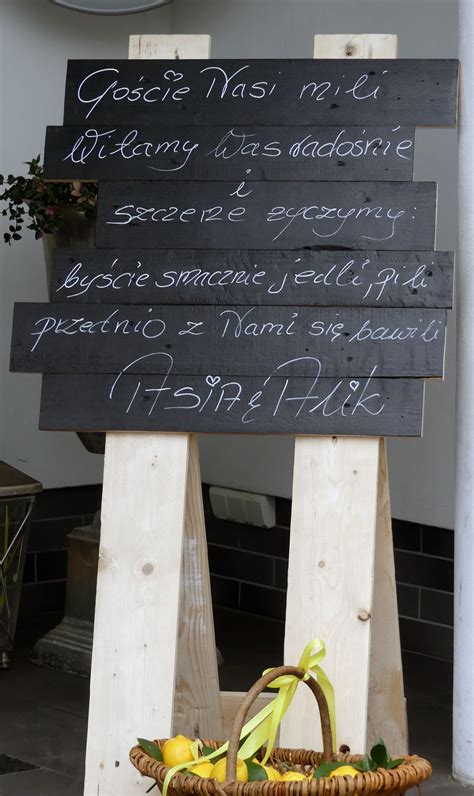 Goście Nasi mili
Witamy Was radośnie
i
szczerze życzymy:
byście smacznie jedli, pili
przednio z Nami się bawili
Asia i Alik